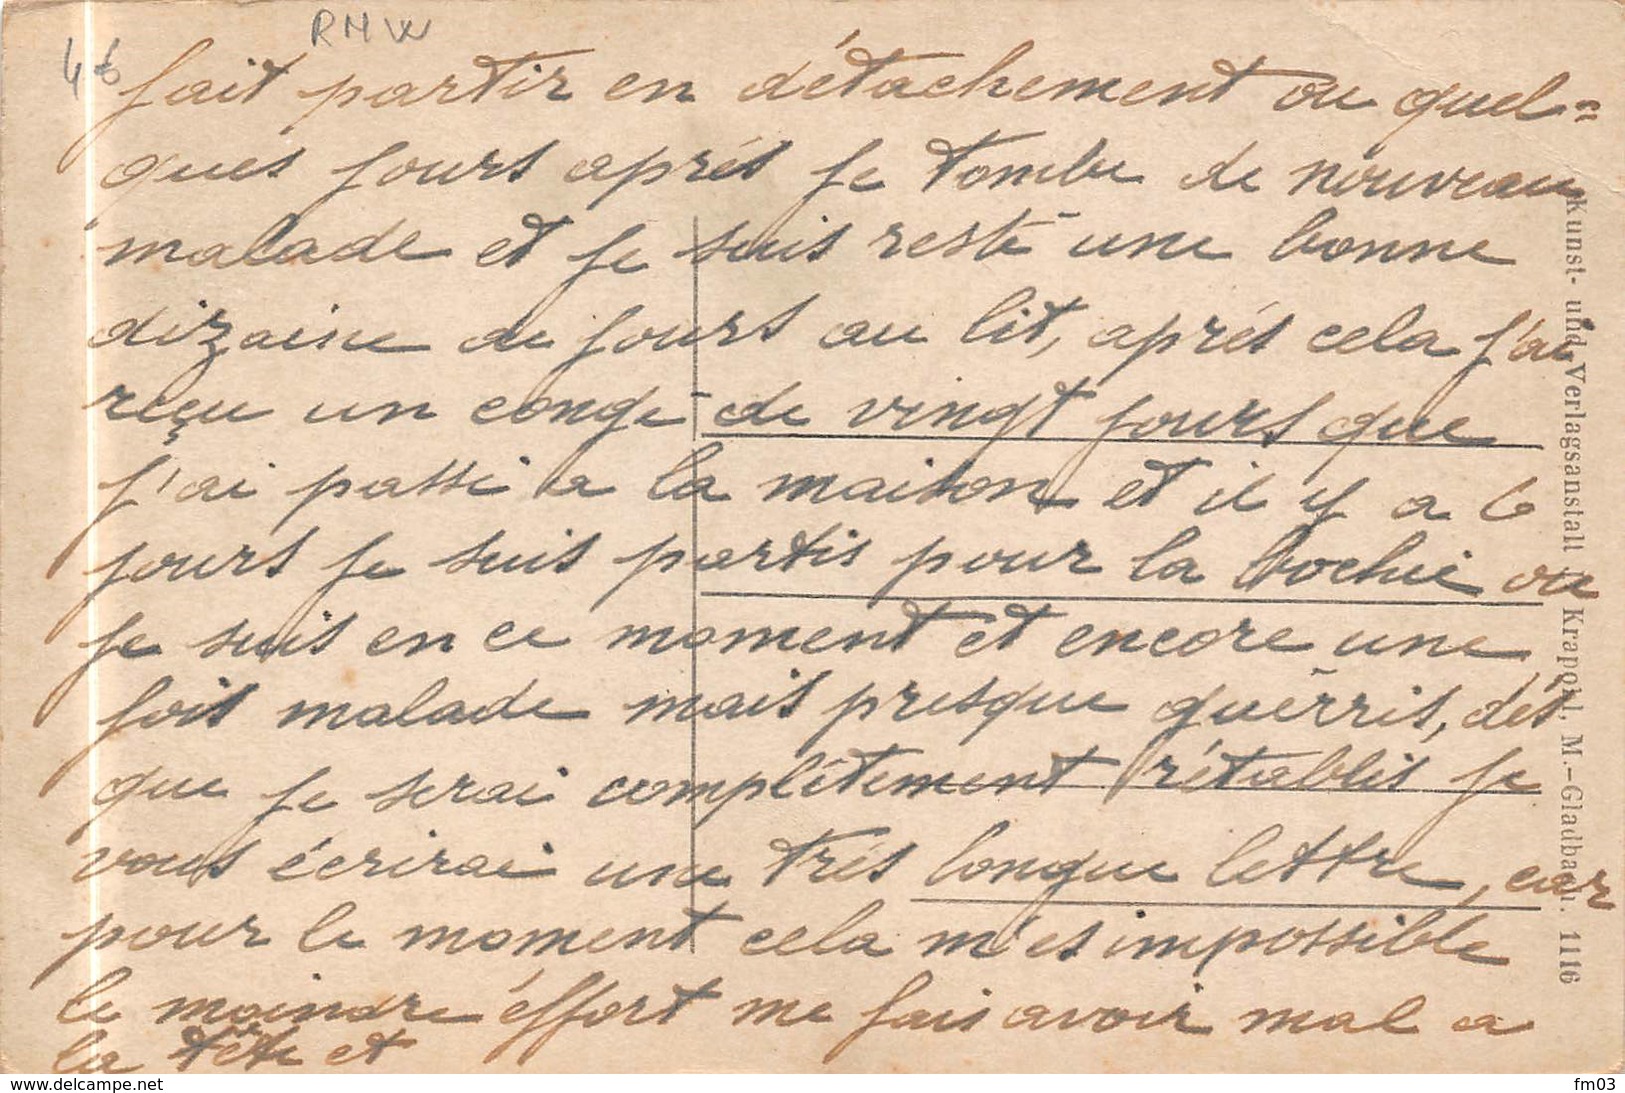 46
RMW
fait partir en détachement ou quel=
ques jours aprés je tombe de nouveau
malade et je suis resté une bonne
dizaine de jours au lit, aprés cela j'ai
reçu un congé de vingt jours que
j'ai passé a la maison et il y a 6
jours je suis partis pour la bochie ou
je suis en ce moment et encore une
fois malade mais presque guérris, dés
que je serai complêtement rétablis je
vous écrirai une trés longue lettre, car
pour le moment cela m'es impossible
le moindre éffort me fais avoir mal a
la tête et
Kunst- und Verlagsanstalt Krapohl, M.-Gladbach. 1116
www.delcampe.net
fm03